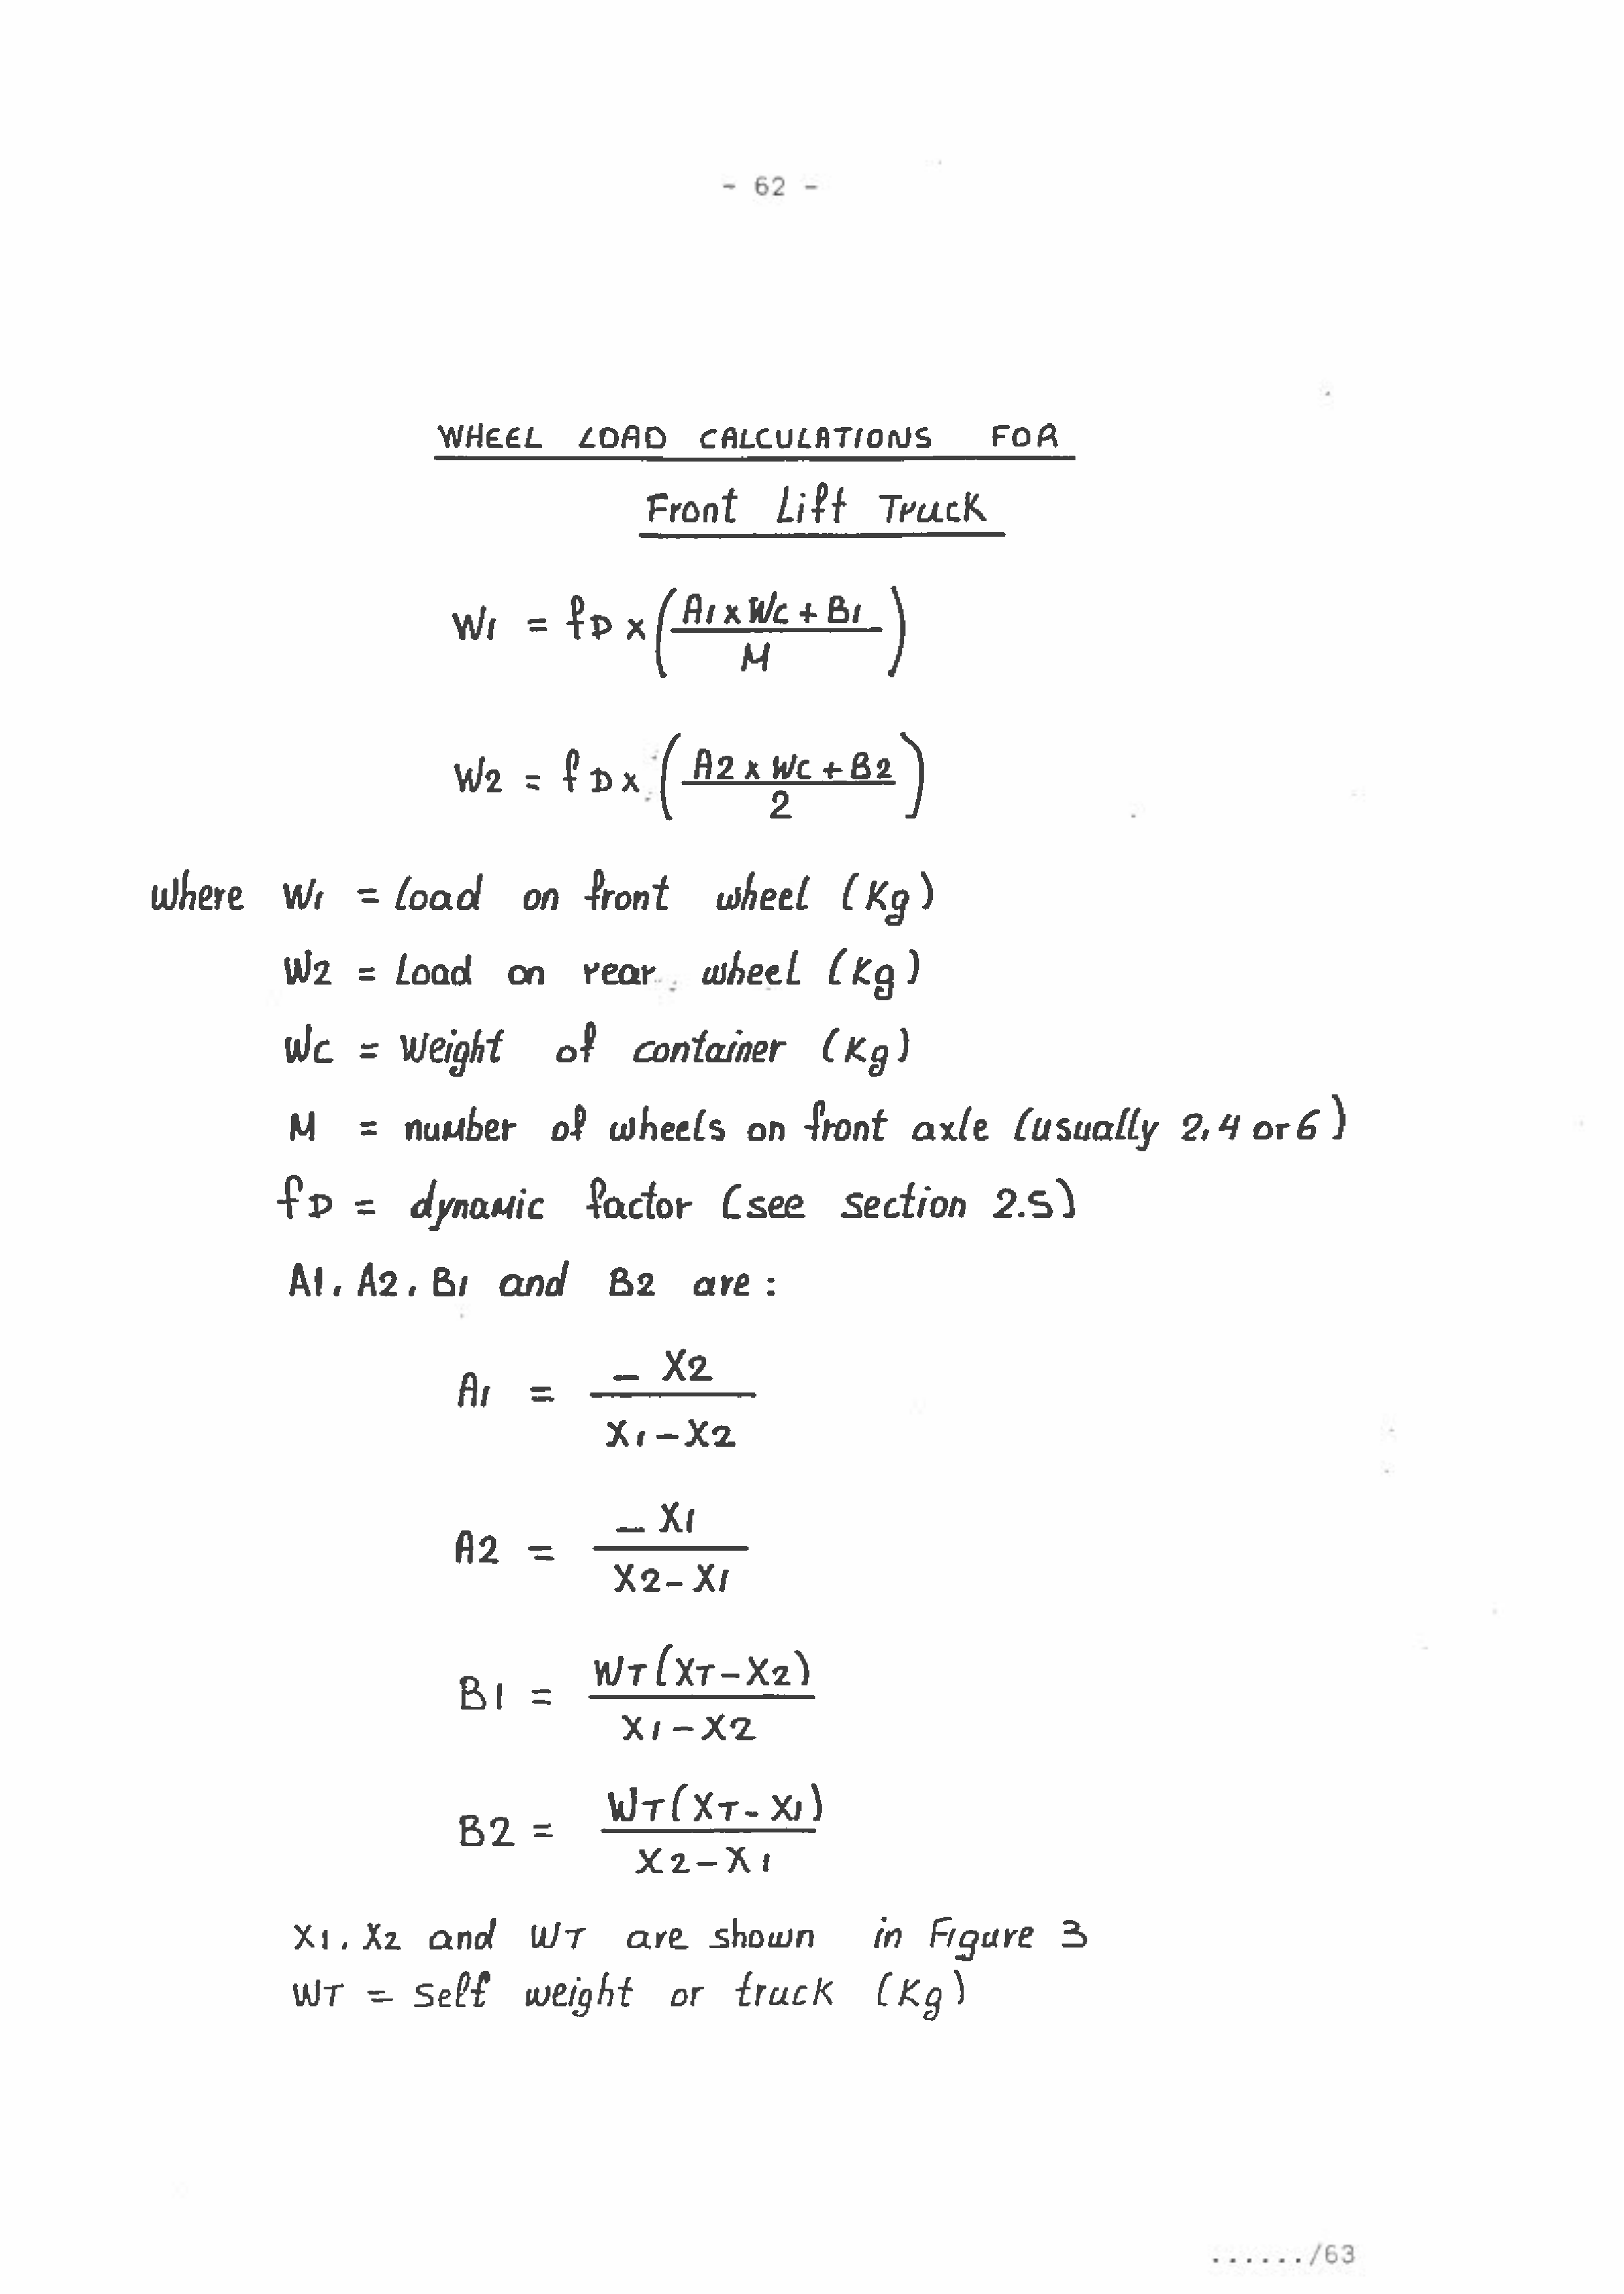 - 62 -
WHEEL LOAD CALCULATIONS FOR
Front Lift Truck
W1 = fD x (A1 x Wc + B1 / M)
W2 = fD x (A2 x Wc + B2 / 2)
where W1 = load on front wheel (Kg)
W2 = Load on rear wheel (Kg)
Wc = Weight of container (Kg)
M = number of wheels on front axle (usually 2,4 or 6)
fD = dynamic factor (see section 2.5)
A1, A2, B1 and B2 are :
A1 = - X2 / X1 - X2
A2 = - X1 / X2 - X1
B1 = WT (XT - X2) / X1 - X2
B2 = WT (XT - X1) / X2 - X1
X1, X2 and WT are shown in Figure 3
WT = Self weight or truck (Kg)
....../63